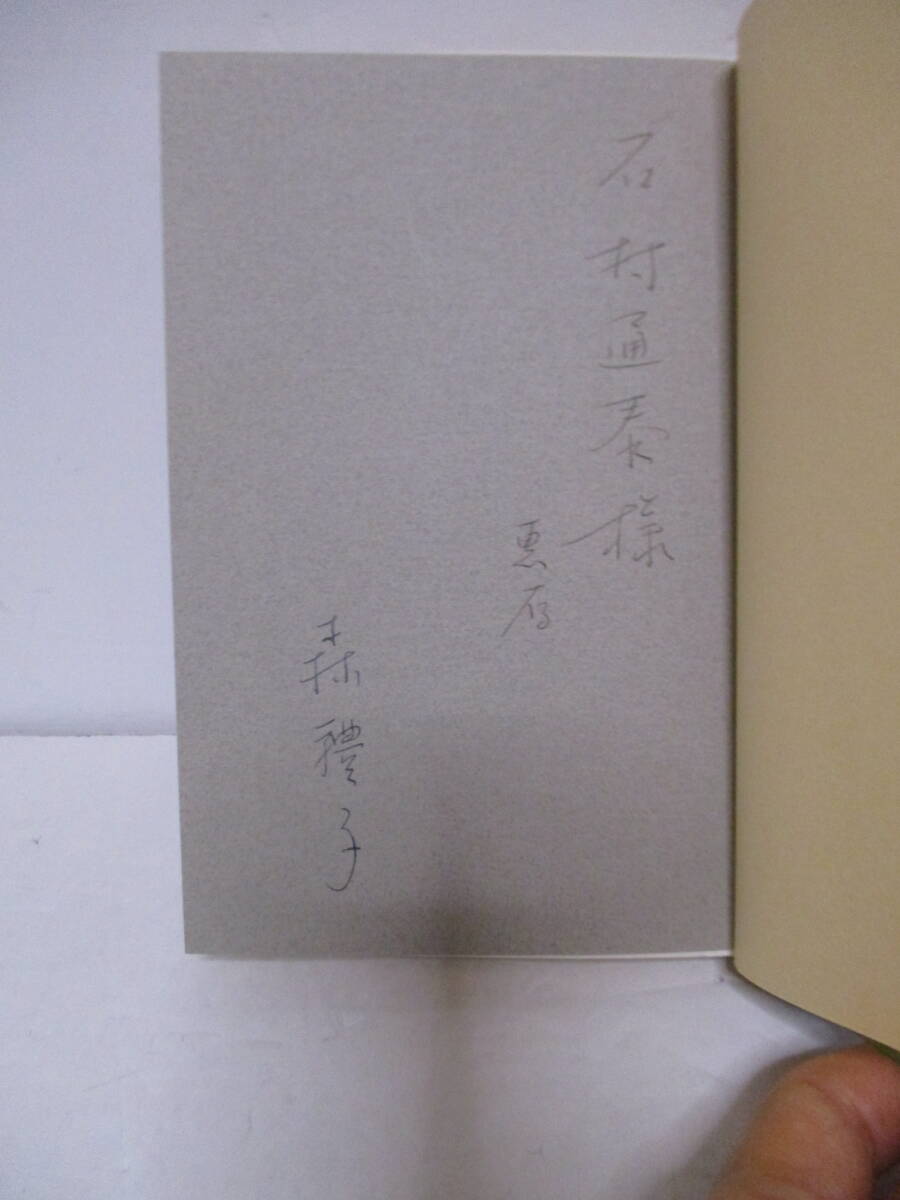 石村通泰様
恵存
森禮子